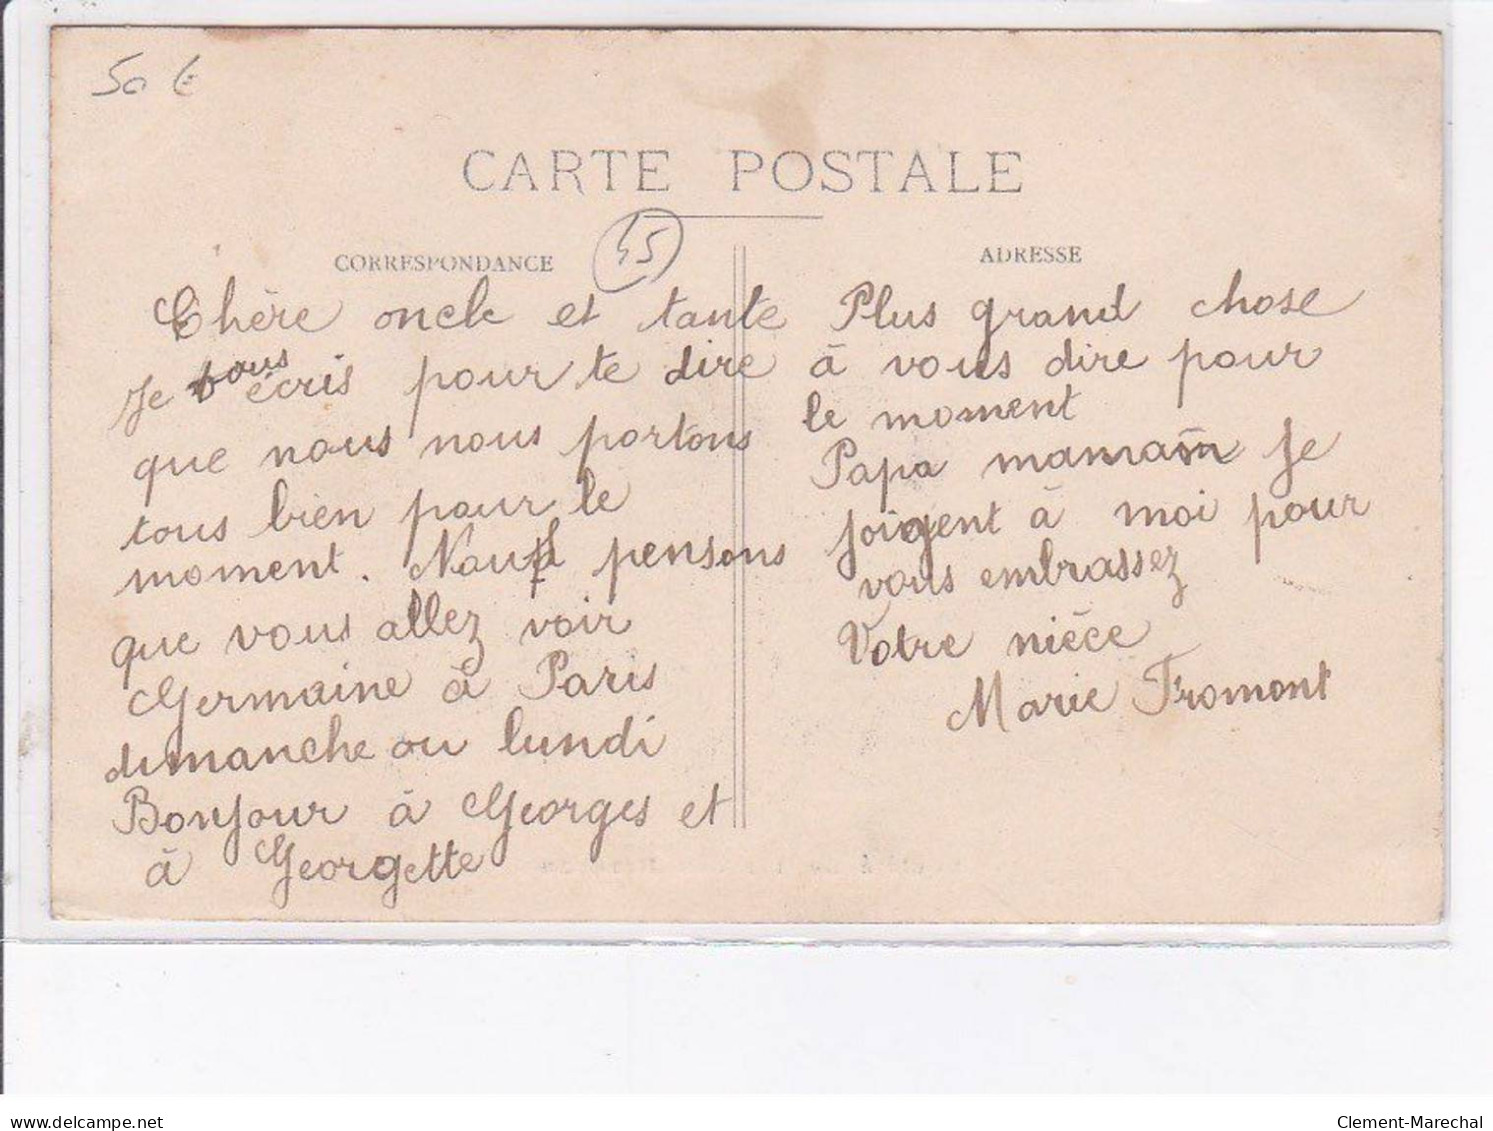 50 €
CARTE POSTALE
45
CORRESPONDANCE
Chère oncle et tante
Je vous écris pour te dire
que nous nous portons
tous bien pour le
moment. Nous pensons
que vous allez voir
Germaine à Paris
dimanche ou lundi
Bonjour à Georges et
à Georgette
ADRESSE
Plus grand chose
à vous dire pour
le moment
Papa maman Je
joigent à moi pour
vous embrassez
Votre nièce
Marie Fromont
www.delcampe.net
Clement-Marechal